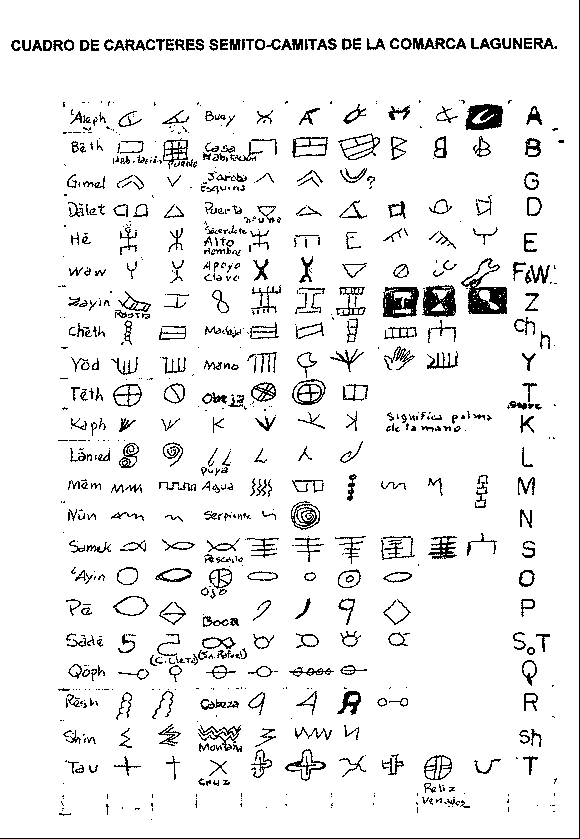 CUADRO DE CARACTERES SEMITO-CAMITAS DE LA COMARCA LAGUNERA.
'Aleph Buey A
Bēth Habitación Puente Casa Habitación B
Gimel Joroba Esquina ? G
Dālet Puerta D
Hē Sacerdote Alto Hombre E
Waw Apoyo Clavo F ó W
Zayin Z
Chēth Madeja Ch h
Yōd Mano Y
Tēth Oveja T
Kaph Significa palma de la mano. K
Lāmed puya L
Mēm Agua M
Nūn Serpiente N
Samek Pescado S
'Ayin Ojo O
Pē Boca P
Sādē (C. Lleta) (Sn. Rafael) S o T
Qōph Q
Rēsh Cabeza R
Shin Montaña Sh
Tau Cruz Reliz Venados T